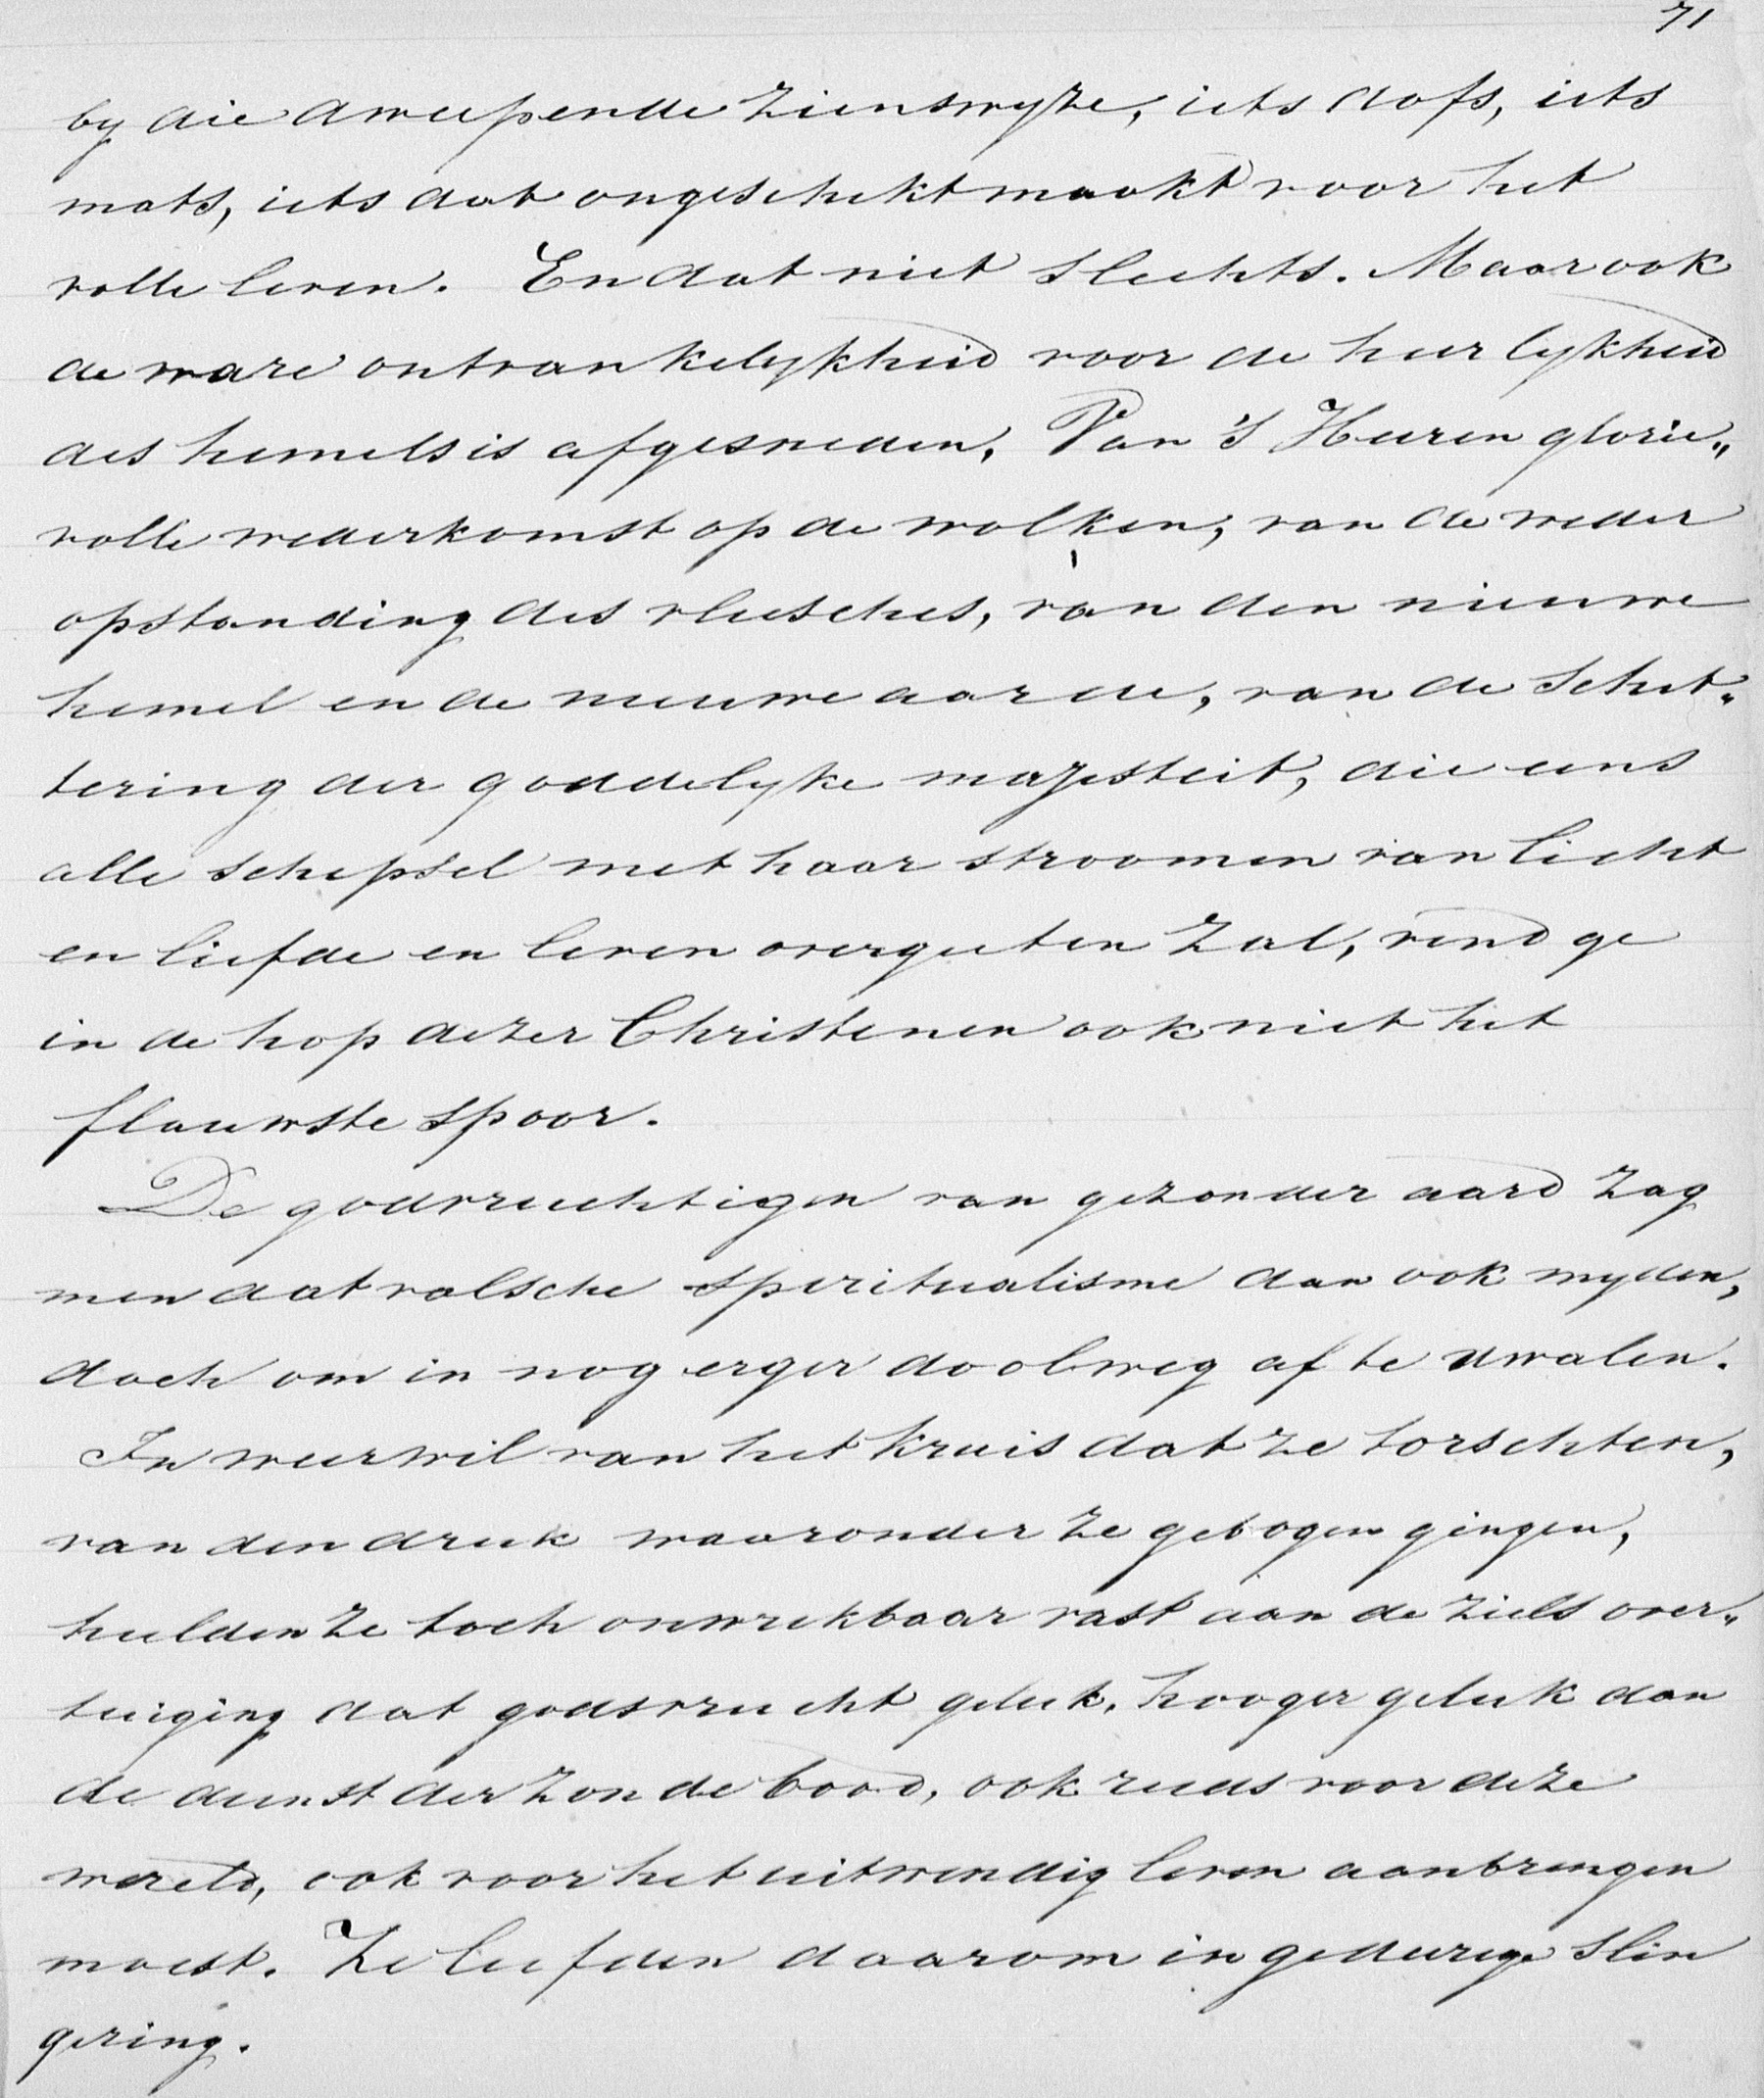 71
by die dweepende zienswyze, iets dofs, iets
mats, iets dat ongeschikt maakt voor het
volle leven. En dat niet slechts. Maar ook
de ware ontvankelykheid voor de heerlykheid
des hemels is afgesneden. Van 's Heeren glorie„
volle wederkomst op de wolken, van de weder
opstanding des vleesches, van den nieuwe
hemel en de nieuwe aarde, van de schit„
tering der goddelyke majesteit, die eens
alle schepsel met haar stroomen van licht
en liefde en leven overgieten zal, vind ge
in de hop dezer Christenen ook niet het
flauwste spoor.
De godvruchtigen van gezonder aard zag
men dat valsche spiritualisme dan ook myden,
doch om in nog erger doolweg af te dwalen.
In weerwil van het kruis dat ze torschten,
van den druk waaronder ze gebogen gingen,
hielden ze toch onwrikbaar vast aan de ziels over„
tuiging dat godsvrucht geluk, hooger geluk dan
de dienst der zonde bood, ook reeds voor deze
wereld, ook voor het uitwendig leven aanbrengen
moest. Ze leefden daarom in gedurige slin
gering.